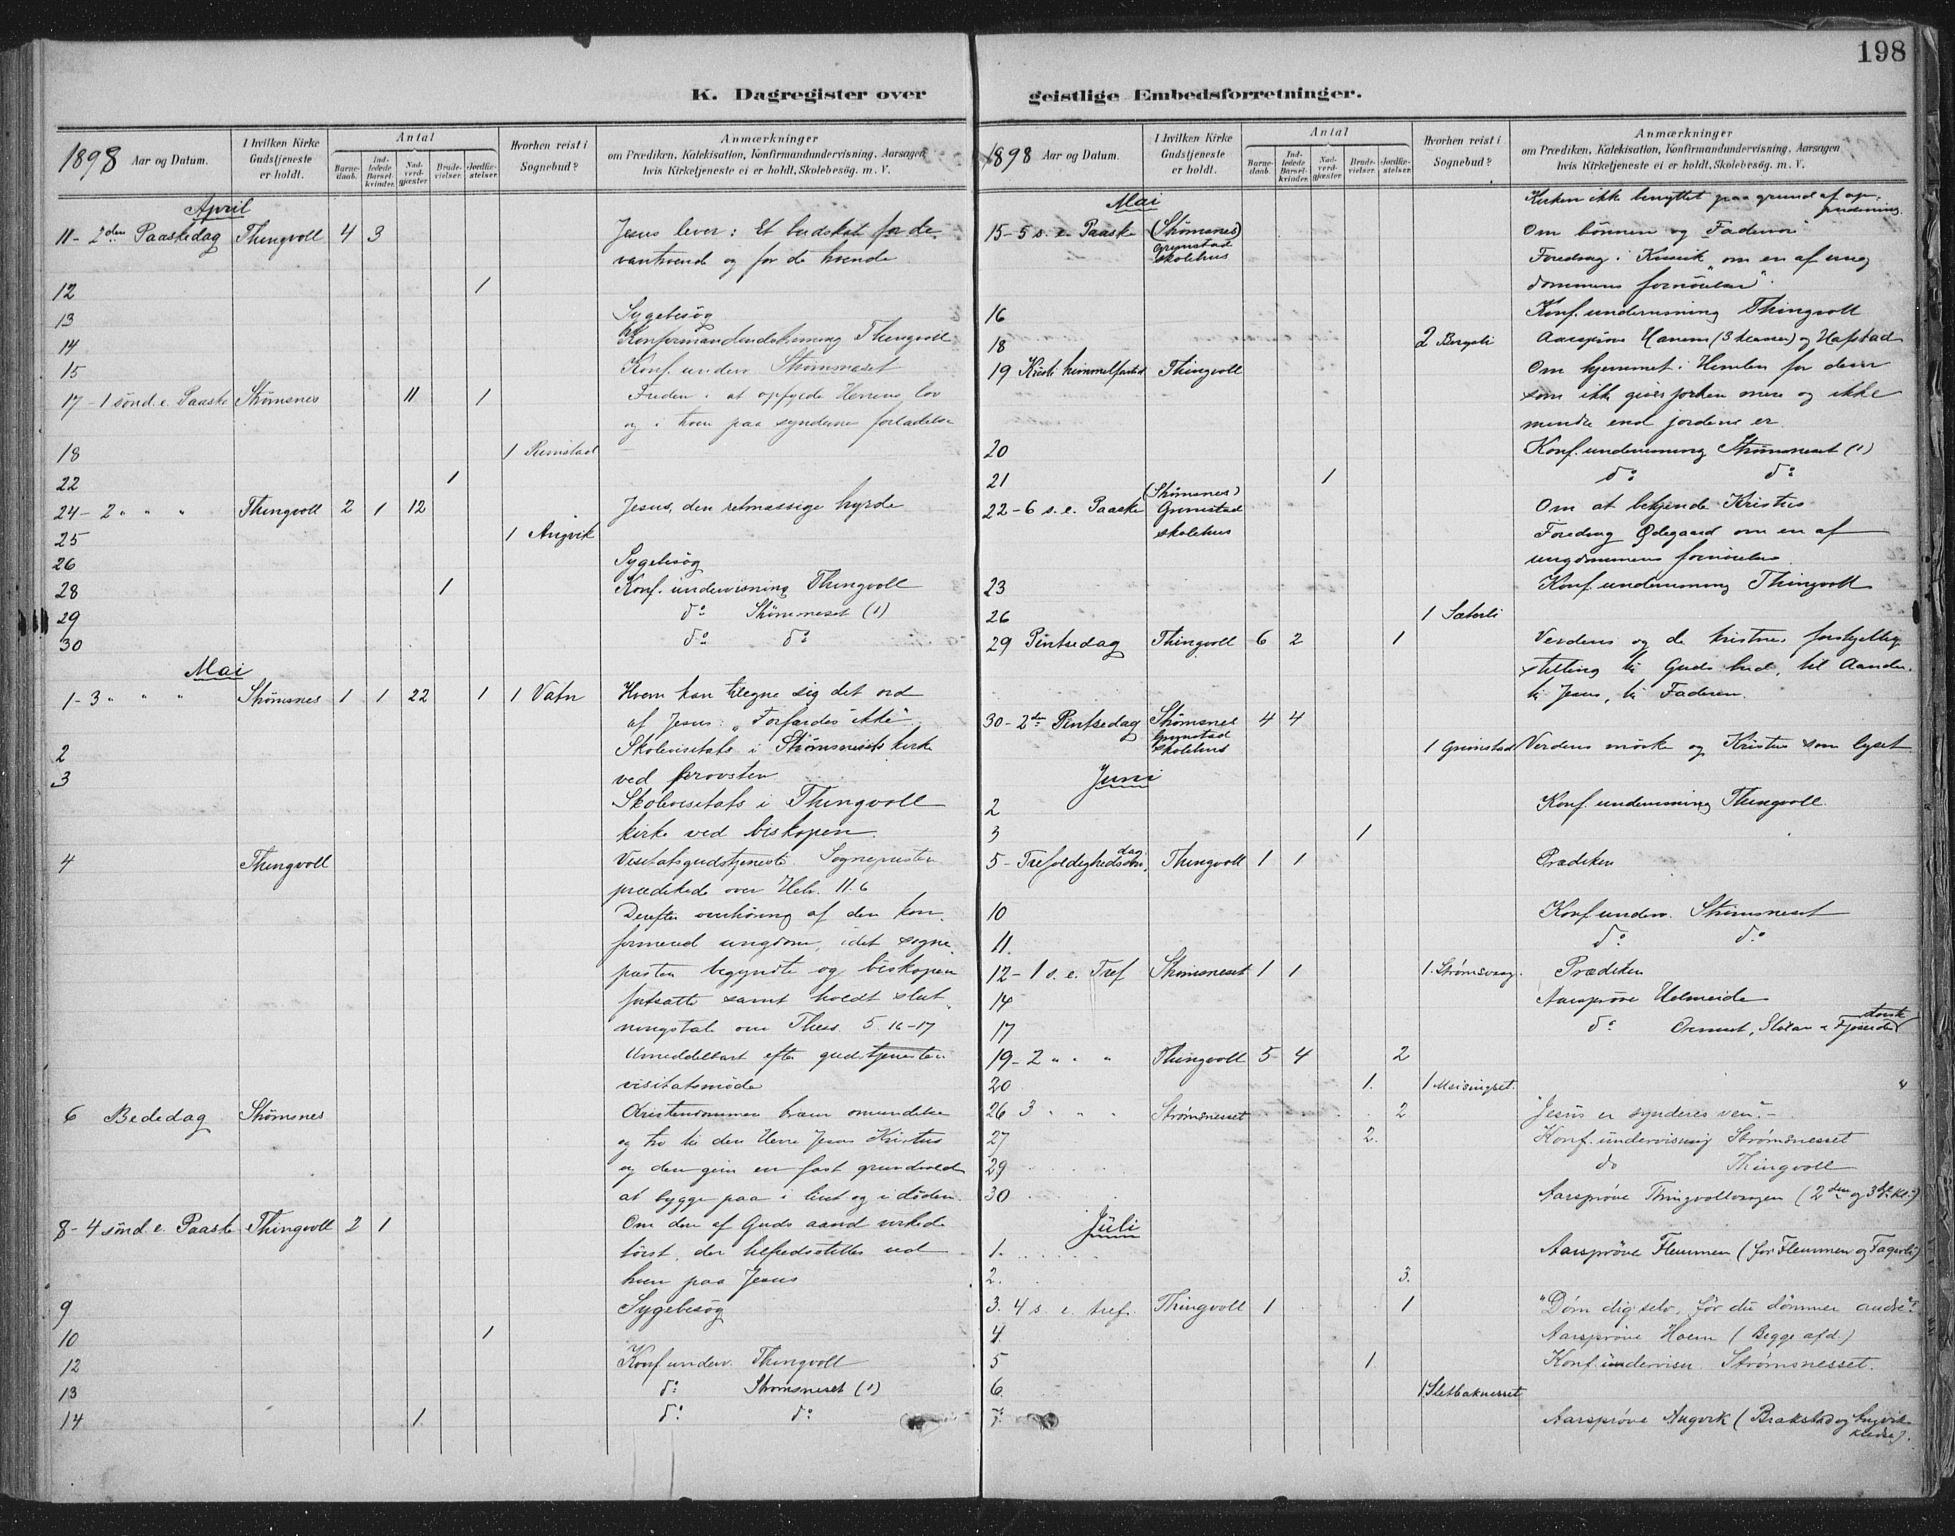 198
K. Dagregister over geistlige Embedsforretninger.
1898 Aar og Datum.
I hvilken Kirke Gudstjeneste er holdt.
Antal
Barnedaab.
Indledede Barselkvinder.
Nadverdgjæster
Brudevielser.
Jordfæstelser.
Hvorhen reist i Sognebud?
Anmærkninger
om Prædiken, Katekisation, Konfirmandundervisning, Aarsagen
hvis Kirketjeneste ei er holdt, Skolebesøg. m. V.
April
11 - 2den Paaskedag Thingvoll 4 3 Jesus lever: Et budskab for de
vantroende og for de troende
12 1
13 Sygebesøg
14 Thingvoll
15 Konf. underv. Strømsneset
17 - 1 sønd. e. Paaske Strømsnes 11 1 Freden i at opfylde Herrens lov
og i troen paa syndernes forladelse
18 1 Rimstad
22 1
24 - 2 " " " Thingvoll 2 1 12 Jesus, den retmæssige hyrde
25 1 Angvik
26 Sygebesøg
28 1 Konf. undervisning Thingvoll
29 do Strømsneset (1)
30 do do
Mai
1 - 3 " " " Strømsnes 1 1 22 1 1 Vatn Hvem kan tilegne sig det ord
af Jesus: "Forfærdes ikke"
2 Skolevisitats i Strømsnesets kirke
3 ved provsten
Skolevisitats i Thingvoll
kirke ved biskopen.
4 Thingvoll Visitatsgudstjeneste. Sognepresten
prædikede over Hebr. 11.6
Derefter overhøring af den kon-
firmered ungdom, idet sogne-
presten begyndte og biskopen
fortsatte samt holdt slut-
ningstale om Thess. 5. 16-17
Umiddelbart efter gudstjenesten
visitatsmøde
6 Bededag Strømsnes Kristendommen omvendelse
og tro til den Herre Jesus Kristus
og den giver en fast grundvold
at bygge paa i livet og i døden.
8 - 4 sønd. e. Paaske Thingvoll 2 1 Om den af Guds aand virkede
tørst, der tilfredsstilles ved
troen paa Jesus
9 Sygebesøg
10 1
12 Konf underv. Thingvoll
13 do Strømsneset (1)
14 1 do do
1898 Aar og Datum.
I hvilken Kirke Gudstjeneste er holdt.
Antal
Barnedaab.
Indledede Barselkvinder.
Nadverdgjæster
Brudevielser.
Jordfæstelser.
Hvorhen reist i Sognebud?
Anmærkninger
om Prædiken, Katekisation, Konfirmandundervisning, Aarsagen
hvis Kirketjeneste ei er holdt, Skolebesøg. m. V.
Mai
Kirken ikke benyttet paa grund af op-
pudsning.
15 - 5 s. e. Paaske (Strømsnes) Grimstad skolehus Om bønnen og "Fadervor"
Foredrag i "om en af ung
dommens fornøielser".
16 Konf. undervisning Thingvoll
18 2 Bergsli Aarsprøve Hanem (3 klasser) og Hafstad
19 Kristi himmelfartsd Thingvoll Om hjemmet i Himlen for dem
som ikke giver jorden mere og ikke
mindre end jordens er
20 Konf. undervisning Strømsneset (1)
21 1 do do
22 - 6 s. e. Paaske (Strømsnes) Grimstad skolehus Om at bekjende Kristus
Foredrag Ødegaard om en af
ungdommens fornøielser
23 Konf undervisning Thingvoll
26 1 Sæterli
29 Pintsedag Thingvoll 6 2 1 Verdens og de kristnes forskjellige
stilling til Guds bud, til Aanden
til Jesus, til Faderen.
30 - 2den Pintsedag Strømsnes Grimstad skolehus 4 4
1 Grimstad Verdens mørke og Kristus som lyset
Juni
2 Konf. undervisning Thingvoll.
3 1
5 - Trefoldighedssøndag Thingvoll 1 1 Prædiken
10 Konf. underv. Strømsneset
11. do do
12 - 1 s. e. Tref Strømsneset 1 1 1. Strømsvaag. Prædiken
14 Aarsprøve Holmeide
17 do Ormset,
19 - 2 " " " Thingvoll 5 4 2
20 1. 1 Meisingset.
26 3 " " Strømsnesset 2 "Jesus er synderes ven". -
27 2. Konf. undervisning Strømsnesset
29 do Thingvoll
30 Aarsprøve Thingvollvaagen (2den og 3die kl.)
Juli
1. Aarsprøve Flemmen (for Flemmen og Fagerli)
2. 3.
3. 4 s. e. tref. Thingvoll 1 1 "Døm dig selv, før du dømmer andre".
4. Aarsprøve Hoem (Begge afd.)
5 1. Konf. undervisn Strømsnesset.
6. 1. Sletbaknesset
7. Aarsprøve Angvik (Brakstad og Angvik
kreds).